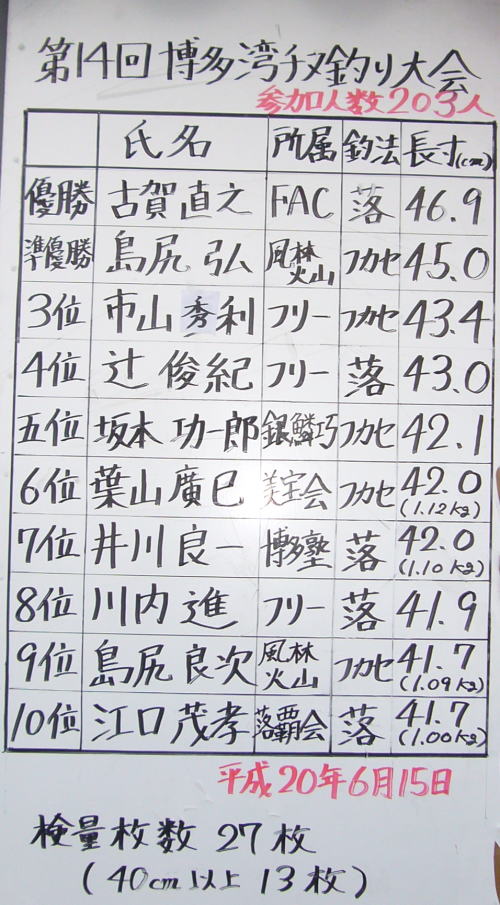 第14回博多湾チヌ釣り大会
参加人数203人
氏名 所属 釣法 長寸(cm)
優勝 古賀直之 FAC 落 46.9
準優勝 島尻 弘 風林火山 フカセ 45.0
3位 市山秀利 フリー フカセ 43.4
4位 辻 俊紀 フリー 落 43.0
五位 坂本 功一郎 銀鱗巧 フカセ 42.1
6位 葉山廣巳 美宝会 フカセ 42.0 (1.12kg)
7位 井川良一 博多塾 落 42.0 (1.10kg)
8位 川内進 フリー 落 41.9
9位 島尻良次 風林火山 フカセ 41.7 (1.09kg)
10位 江口茂孝 落覇会 落 41.7 (1.00kg)
平成20年6月15日
検量枚数 27枚
(40cm以上 13枚)